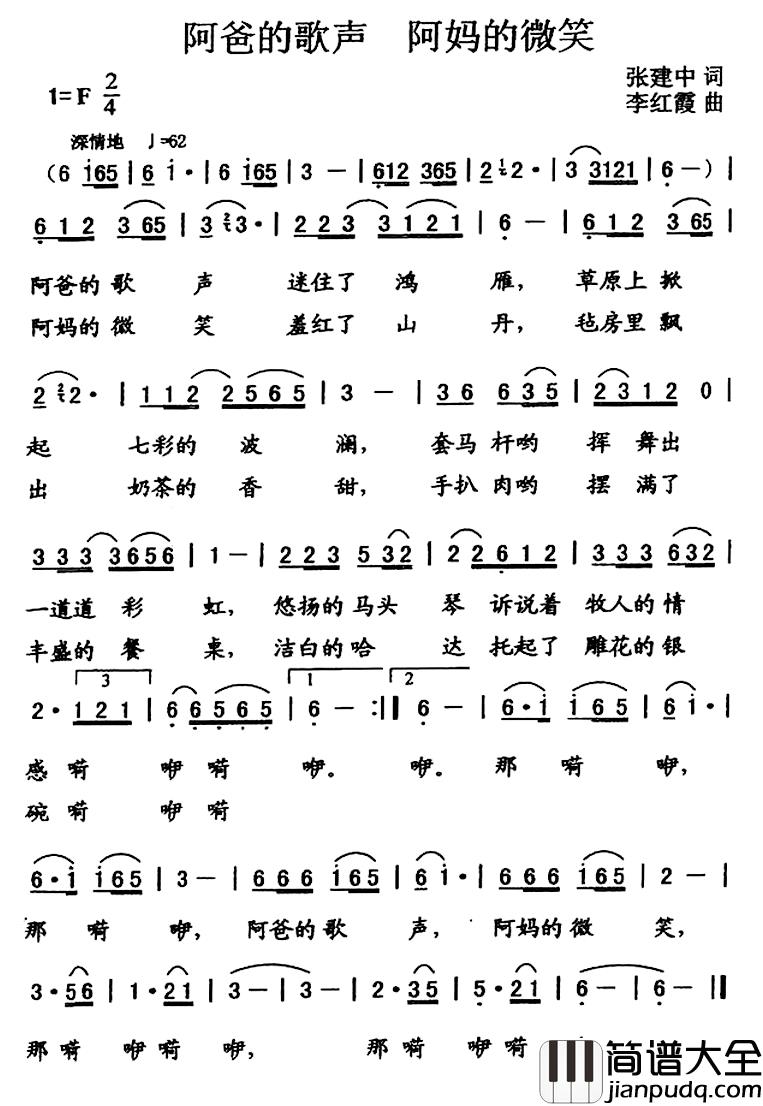 阿爸的歌声 阿妈的微笑
1=F 2/4
张建中 词
李红霞 曲
深情地 ♩=62
(6 i65 | 6 i· | 6 i65 | 3 - | 612 365 | 2 2· | 3 3121 | 6 -) |
6 1 2 3 65 | 3 3· | 2 2 3 3 1 2 1 | 6 - | 6 1 2 3 65 |
阿爸的 歌 声 迷住了 鸿 雁, 草原上 掀
阿妈的 微 笑 羞红了 山 丹, 毡房里 飘
2 2· | 1 1 2 2 5 6 5 | 3 - | 3 6 6 3 5 | 2 3 1 2 0 |
起 七彩的 波 澜, 套马 杆哟 挥 舞出
出 奶茶的 香 甜, 手扒 肉哟 摆 满了
3 3 3 3 6 5 6 | 1 - | 2 2 3 5 3 2 | 2 2 6 1 2 | 3 3 3 6 3 2 |
一道道 彩 虹, 悠扬的 马头 琴 诉说着 牧人的 情
丰盛的 餐 桌, 洁白的 哈 达 托起了 雕花的 银
3 1 2
2· 1 2 1 | 6 6 5 6 5 | 6 - :‖ 6 - | 6· i i 6 5 | 6 i· |
感 嗬 咿嗬 咿。 咿。 那 嗬 咿,
碗 嗬 咿嗬
6· i i 6 5 | 3 - | 6 6 6 i 6 5 | 6 i· | 6 6 6 i 6 5 | 2 - |
那 嗬 咿, 阿爸的 歌 声, 阿妈的 微 笑,
3· 5 6 | 1· 2 1 | 3 - | 3 - | 2· 3 5 | 5· 2 1 | 6 - | 6 - ‖
那嗬 咿嗬 咿, 那嗬 咿嗬
简谱大全
jianpudq.com